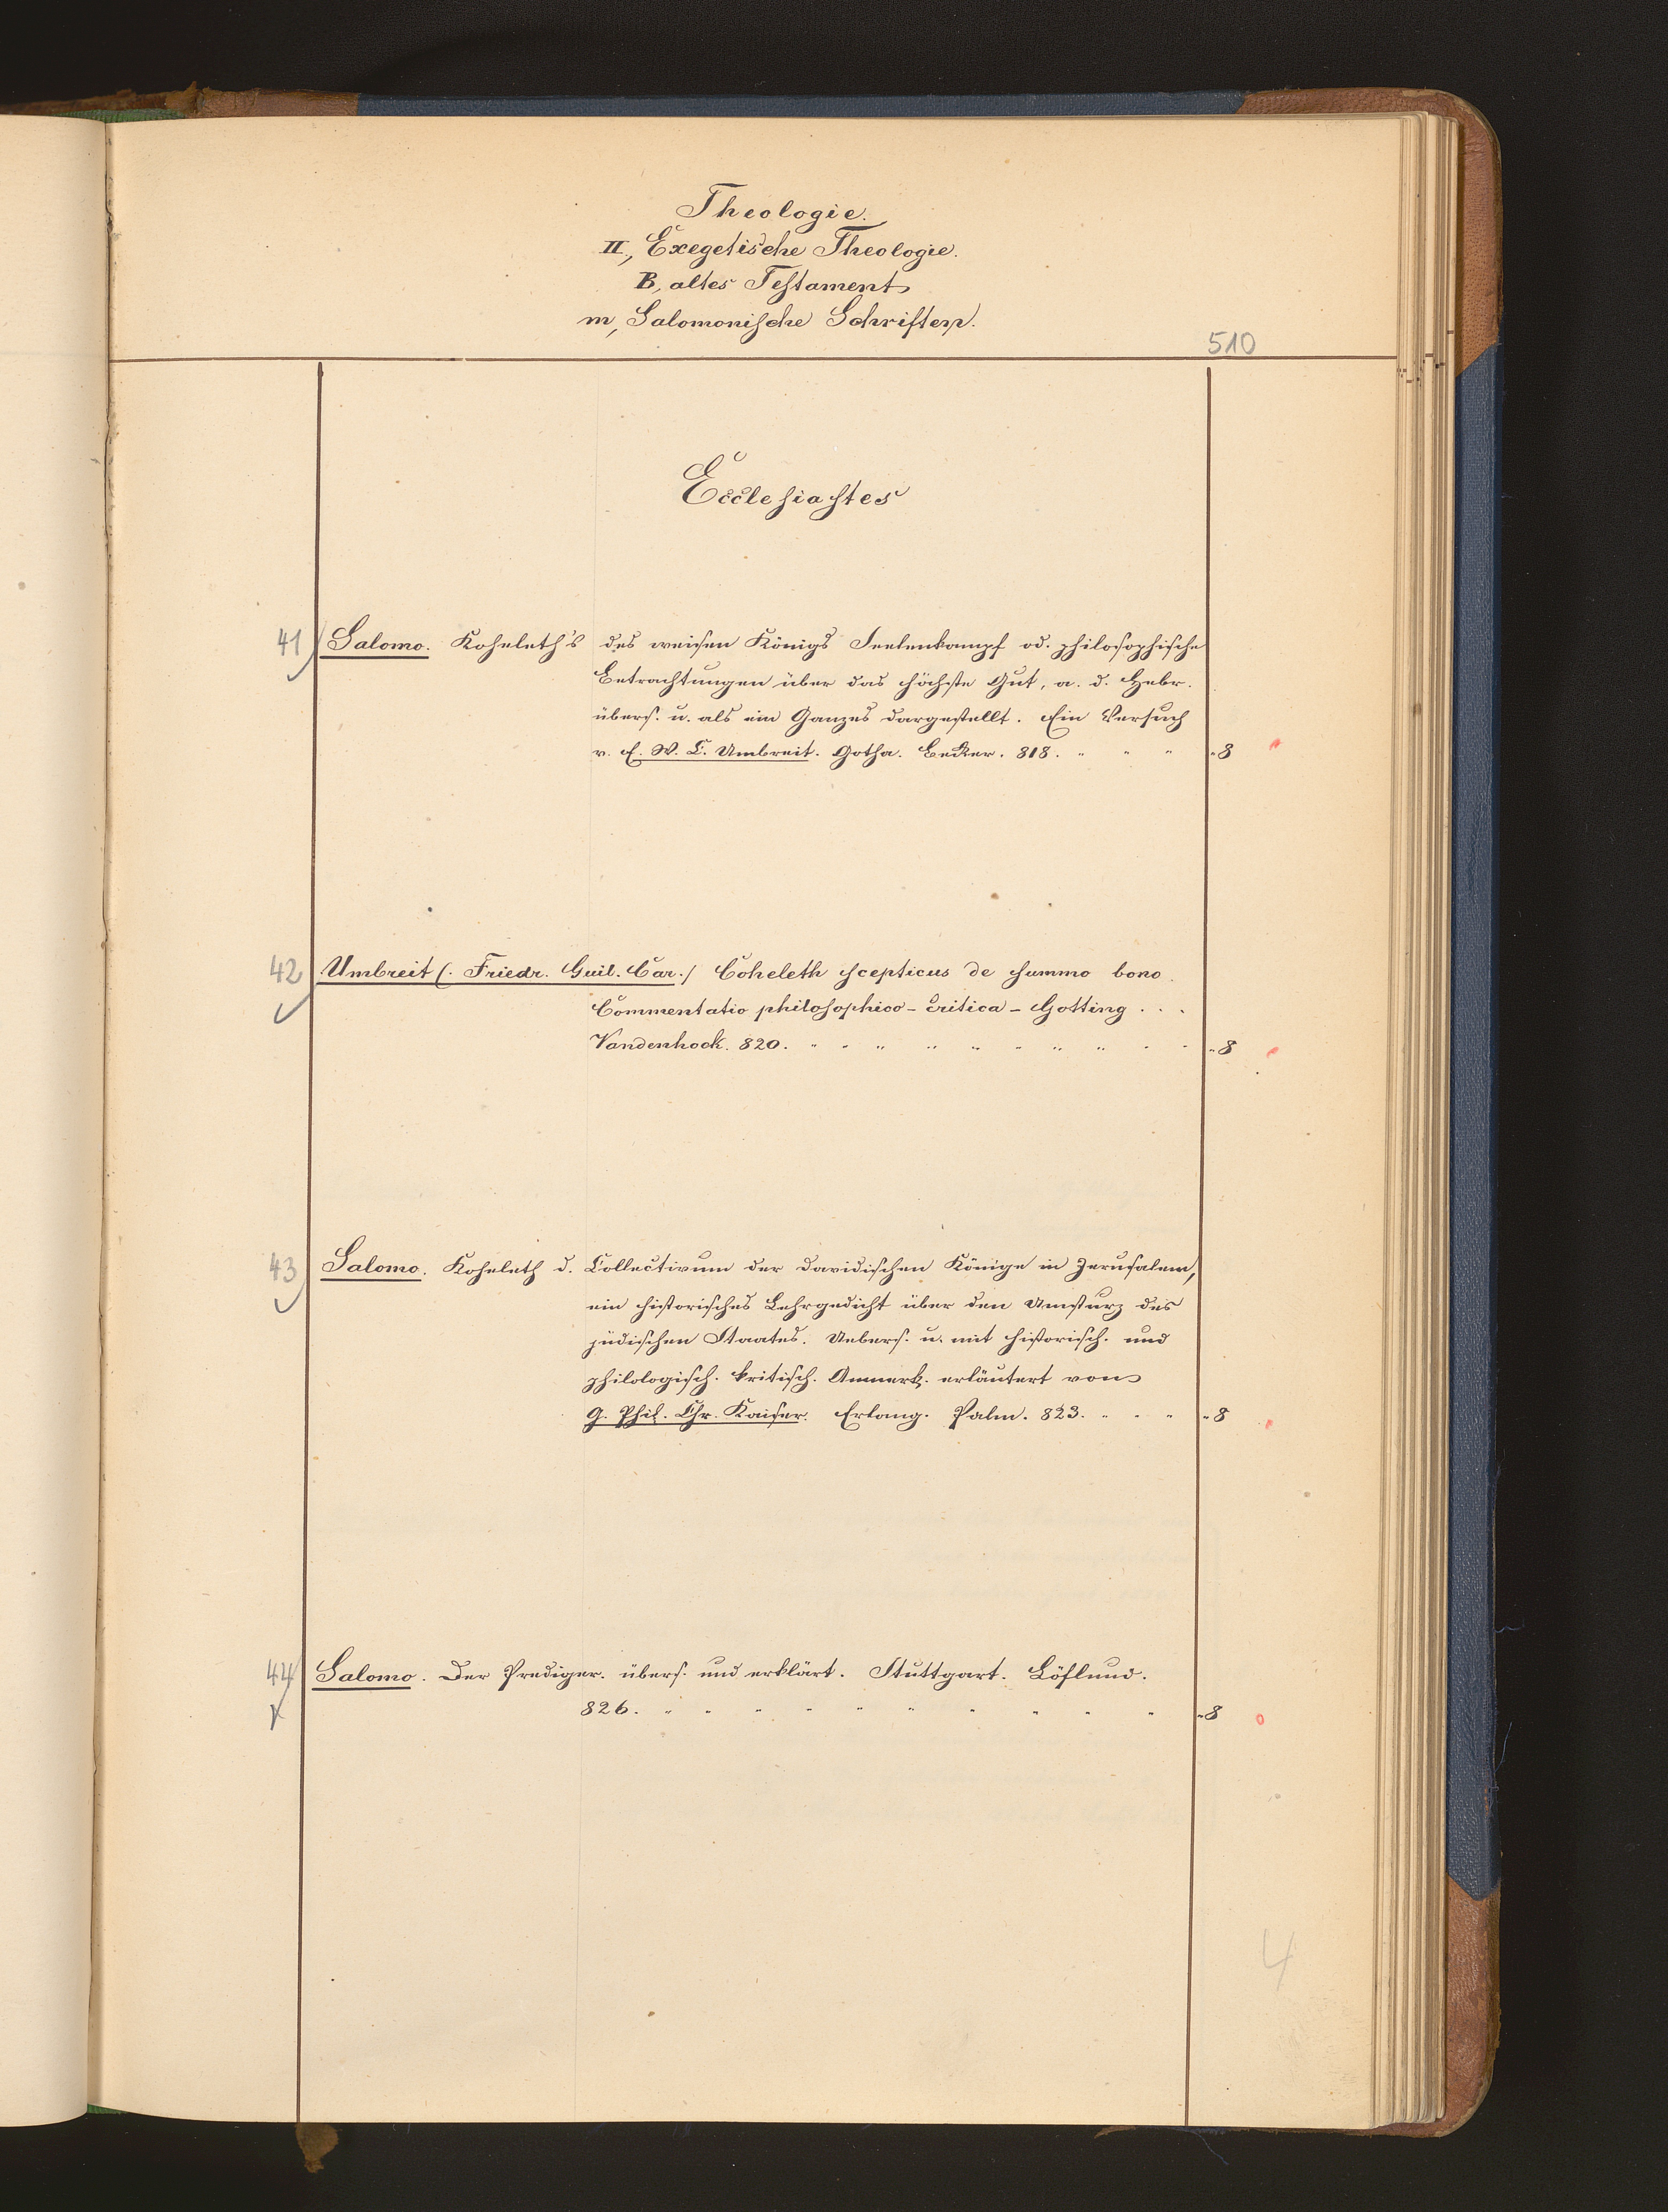 Theologie.
II., Exegetische Theologie.
B, altes Testament
m, Salomonische Schriften.
510
Ecclesiastes
41 Salomo. Koheleth's des weisen Königs Seelenkampf od. philosophische
Betrachtungen über das höchste Gut, a. d. Hebr.
übers. u. als ein Ganzes dargestellt. Ein Versuch
v. F. W. C. Umbreit. Gotha. Becker. 818. " " " " 8
42 Umbreit (. Friedr. Guil. Car./ Coheleth scepticus de summo bono.
Commentatio philosophico-critica - Gotting . . .
Vandenhock. 820. " " " " " " " " " " 8
43 Salomo. Koheleth d. Collectivum der davidischen Könige in Jerusalem,
ein historisches Lehrgedicht über den Umsturz des
jüdischen Staates. Uebers. u. mit historisch. und
philologisch. kritisch. Anmerk. erläutert von
G. Phil. Chr. Kaiser. Erlang. Palm. 823. " " " " 8
44 Salomo. Der Prediger. übers. und erklärt. Stuttgart. Löflund.
826. " " " " " " " " " " " 8
4